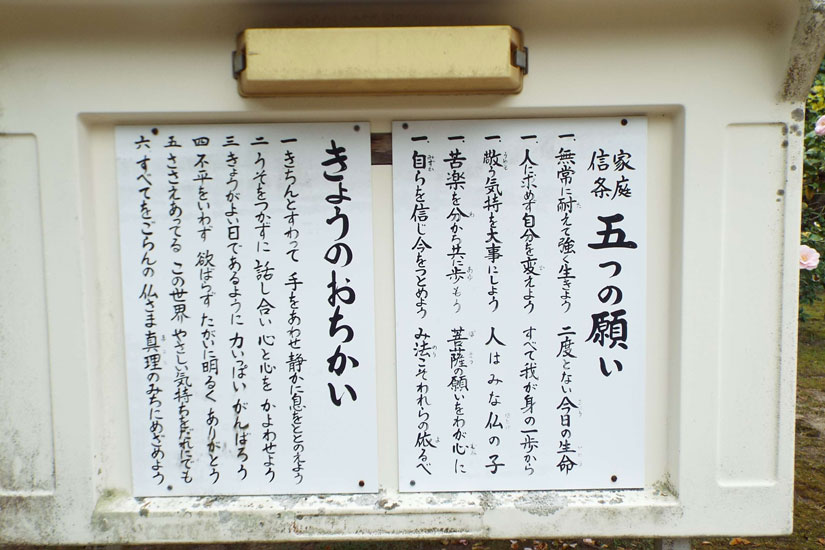 家庭信条 五つの願い
一、無常に耐えて強く生きよう 二度とない今日の生命
一、人に求めず自分を変えよう すべて我が身の一歩から
一、敬う気持を大事にしよう 人はみな仏の子
一、苦楽を分かち共に歩もう 菩薩の願いをわが心に
一、自らを信じ今をつとめよう み法こそわれらの依るべ
きょうのおちかい
一 きちんとすわって 手をあわせ 静かに息をととのえよう
二 うそをつかずに 話し合い 心と心を かよわせよう
三 きょうがよい日であるように 力いっぱい がんばろう
四 不平をいわず 欲ばらず たがいに明るく ありがとう
五 ささえあってる この世界 やさしい気持ちをだれにでも
六 すべてをごらんの 仏さま 真理のみちにめざめよう